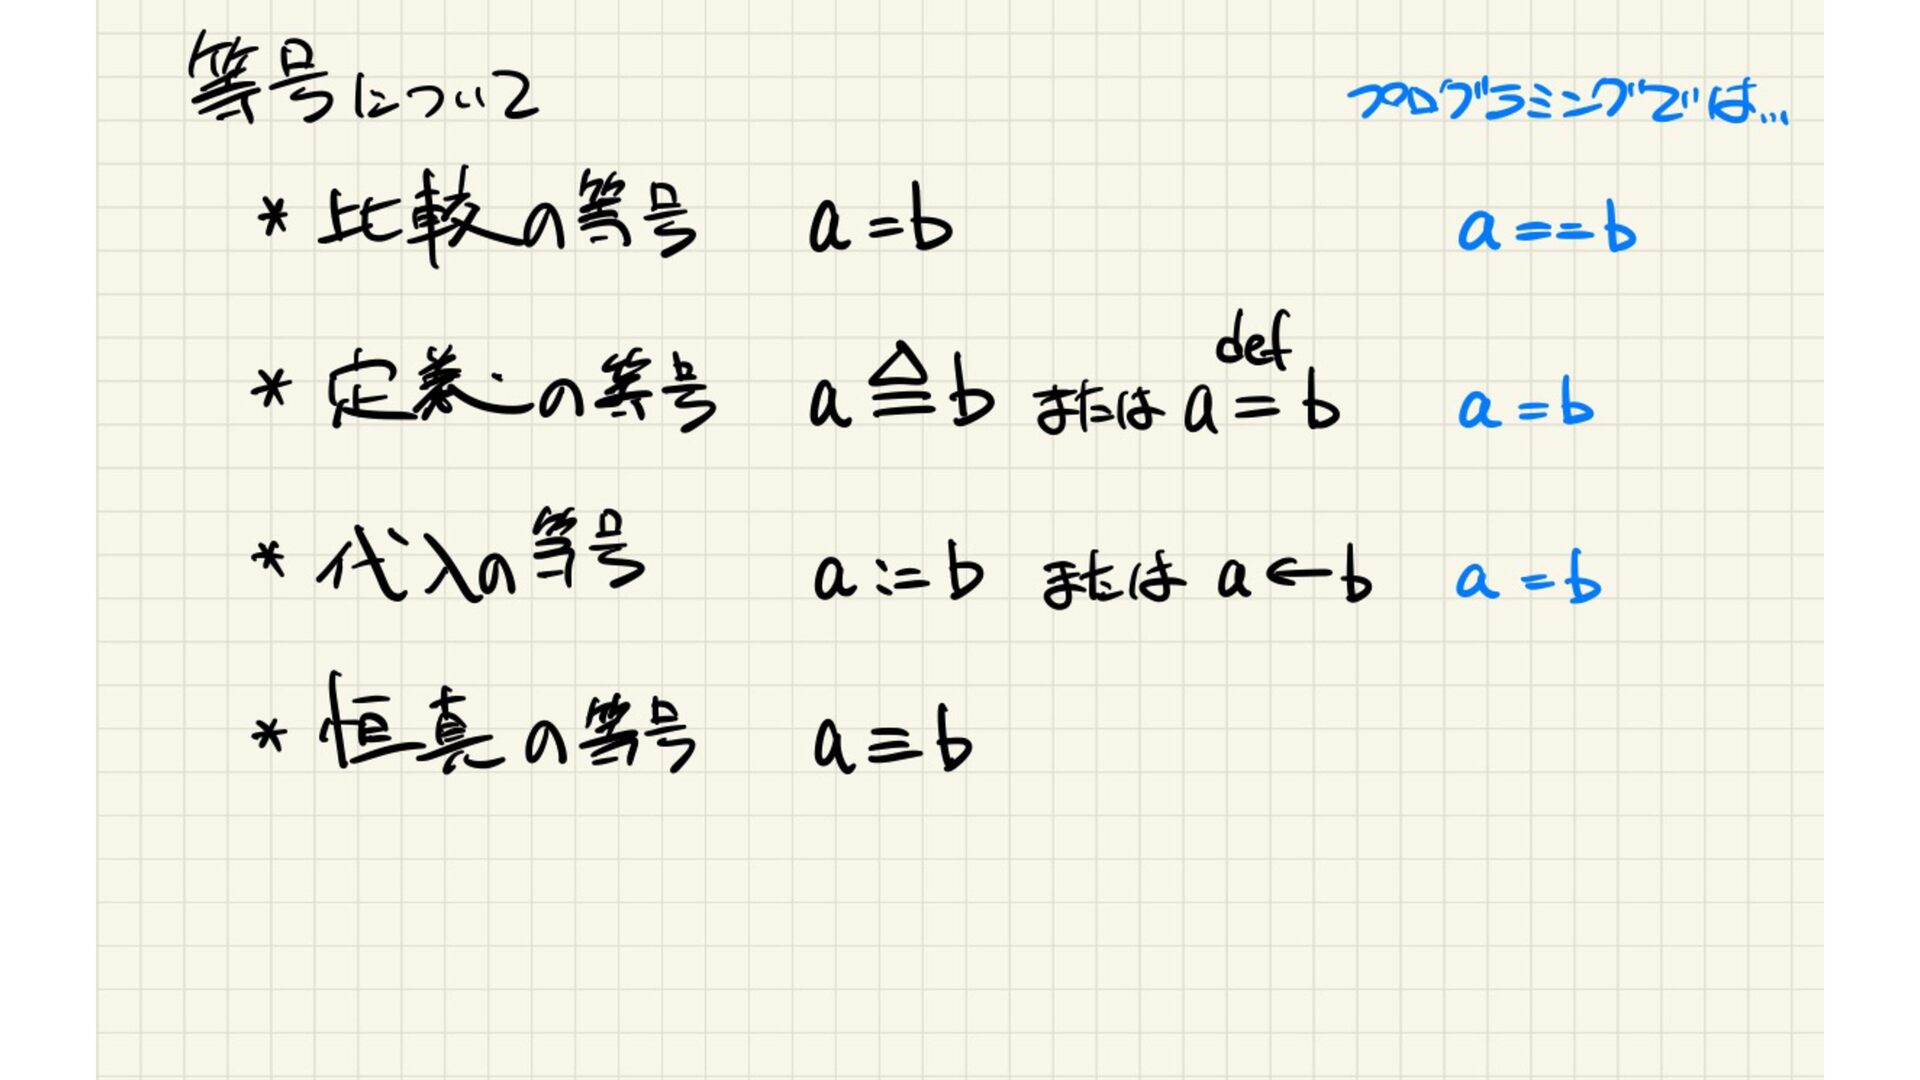 等号について プログラミングでは...
* 比較の等号 a = b a == b
* 定義の等号 a ≜ b または a =^def b a = b
* 代入の等号 a := b または a ← b a = b
* 恒真の等号 a ≡ b